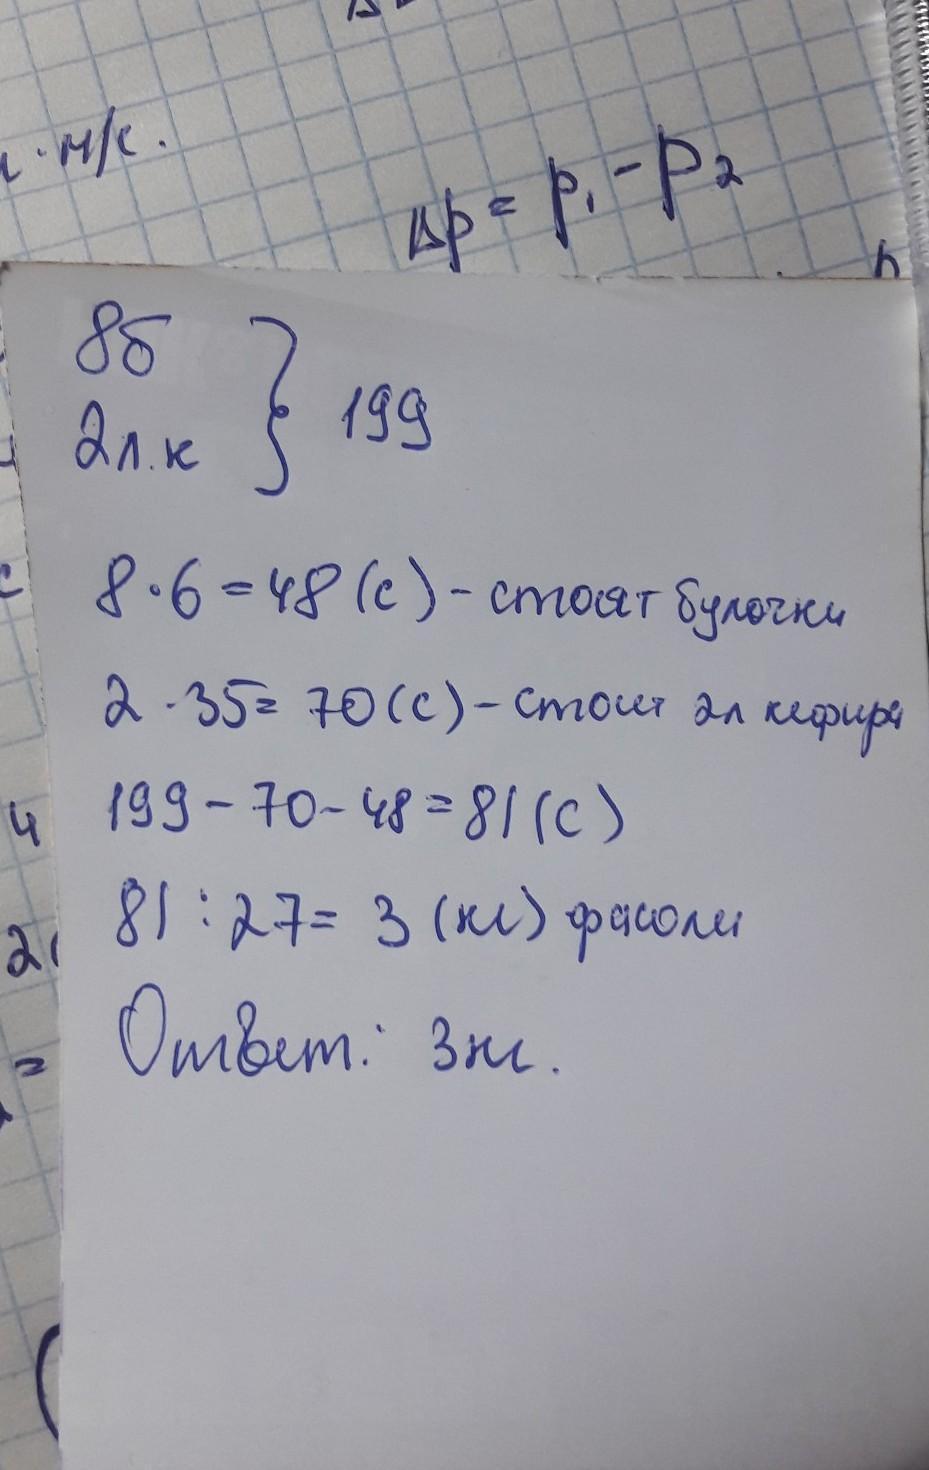 м/с.
Δp = p₁ - p₂
8б
2л.к } 199
8·6=48(с)-стоят булочки
2·35=70(с)-стоит 2л кефира
199-70-48=81(с)
81:27=3(кг) фасоли
Ответ: 3кг.